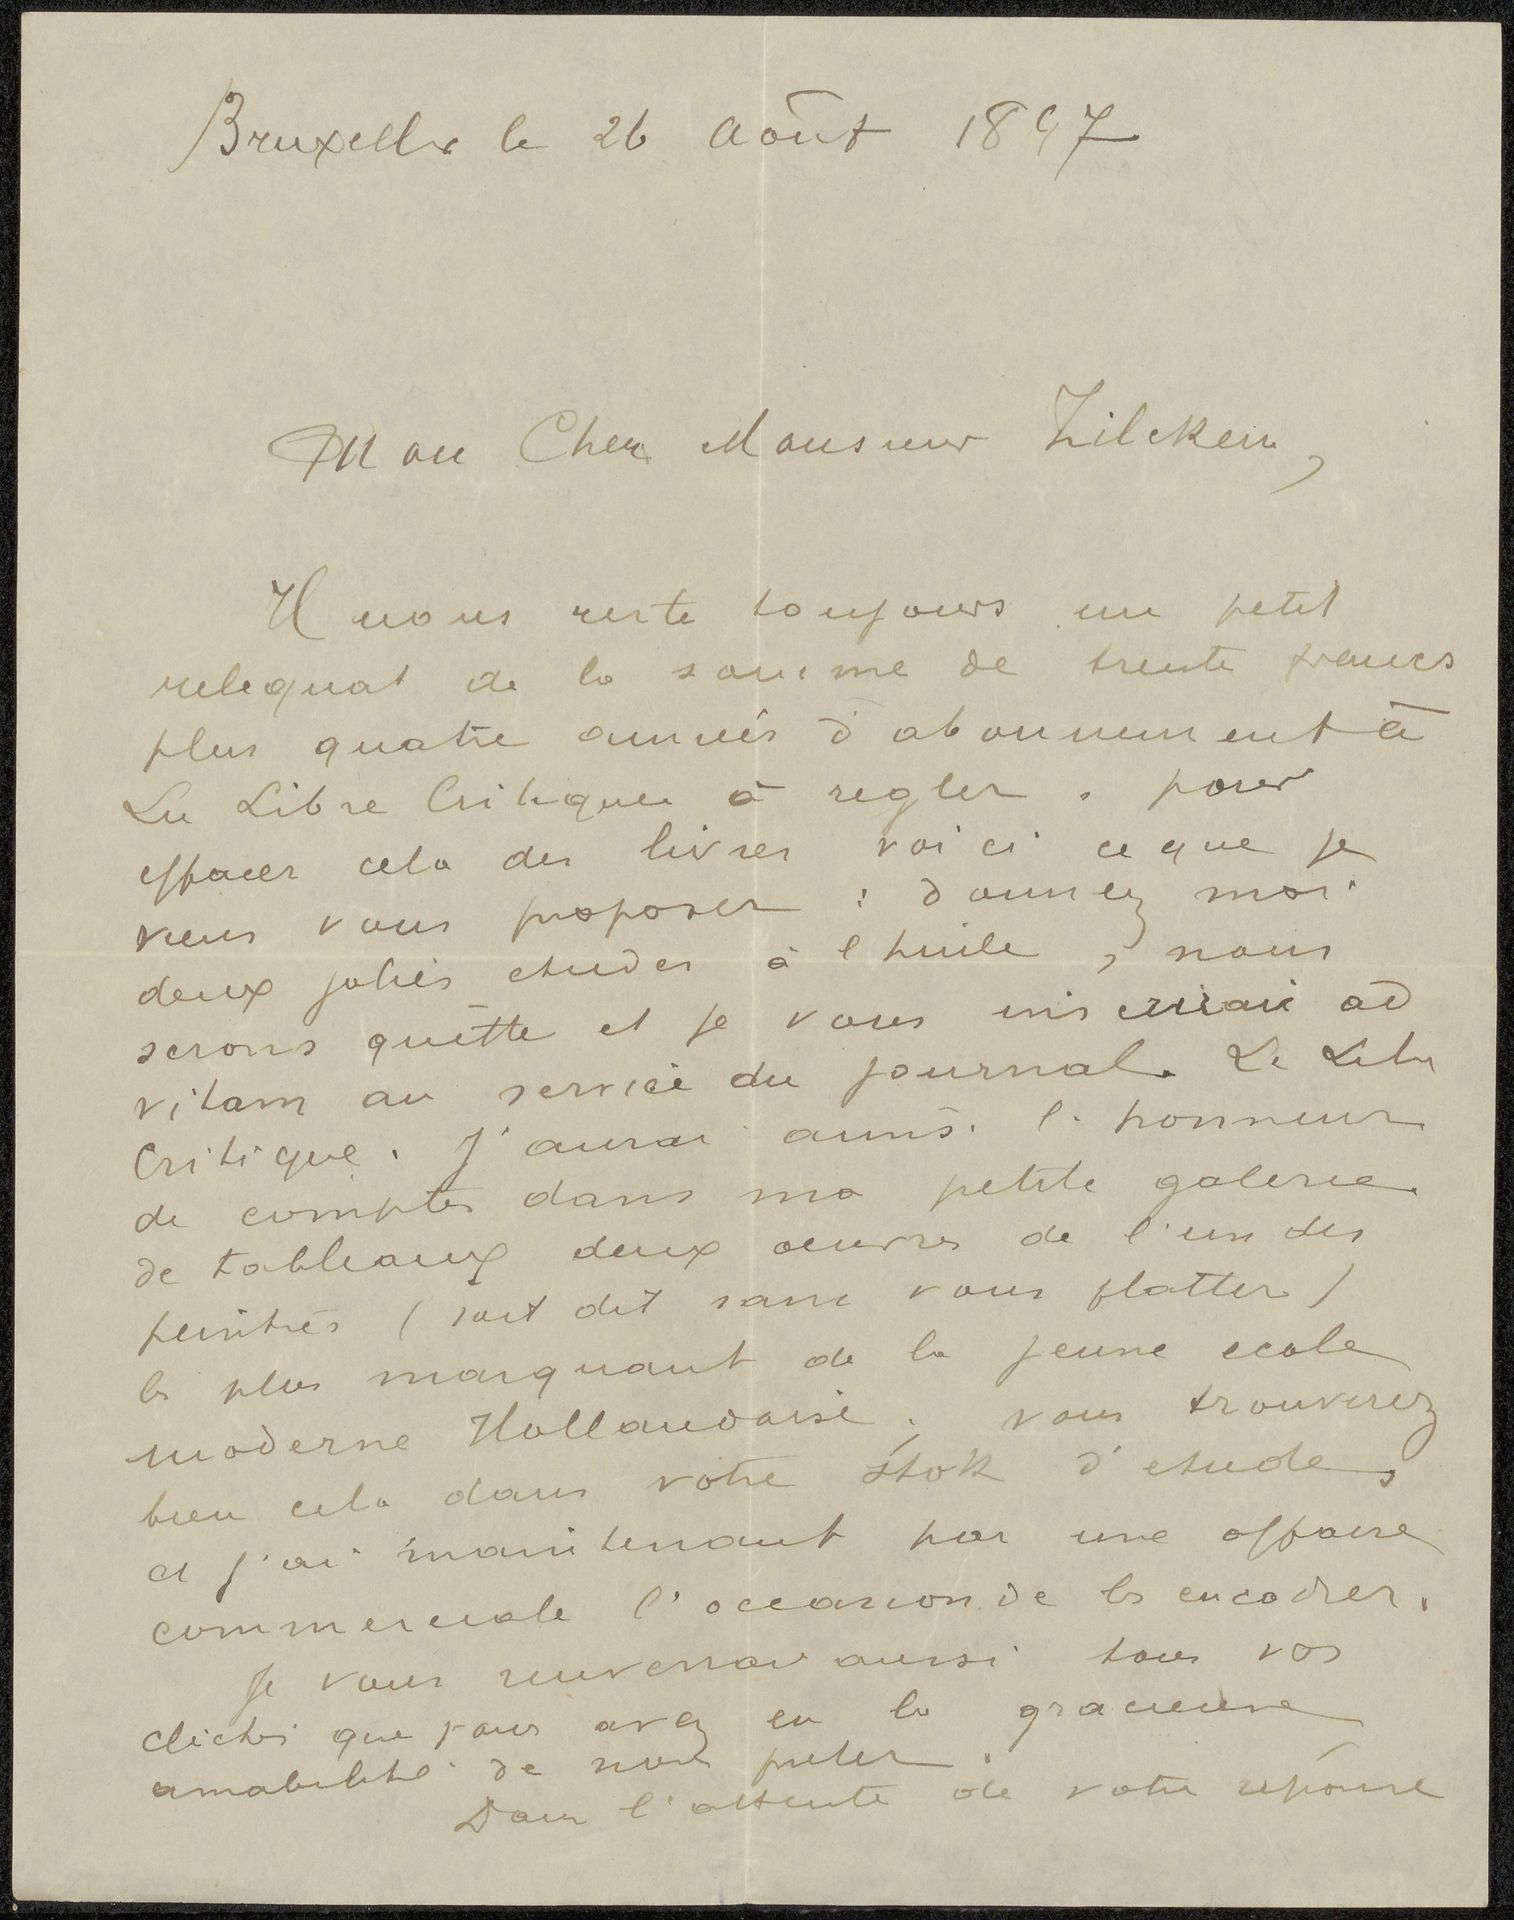 Bruxelles le 26 Août 1897
Mon Cher Monsieur Zilcken,
Il nous reste toujours un petit
reliquat de la somme de trente francs
plus quatre années d'abonnement à
La Libre Critique à regler. pour
effacer cela des livres voici ce que je
viens vous proposer : donnez moi
deux jolies etudes à l'huile, nous
serons quitte et je vous inscrirai ad
vitam au service du journal. La Libre
Critique. J'aurai ainsi l'honneur
de compter dans ma petite galerie
de tableaux deux oeuvres de l'un des
peintres (soit dit sans vous flatter)
le plus marquant de la jeune ecole
moderne Hollandaise. vous trouverez
bien cela dans votre stok d'etudes
et j'ai maintenant par une affaire
commerciale l'occasion de les encadrer.
Je vous renverrai aussi tous vos
clichés que vous avez eu la gracieuse
amabilité de nous preter.
Dans l'attente de votre réponse